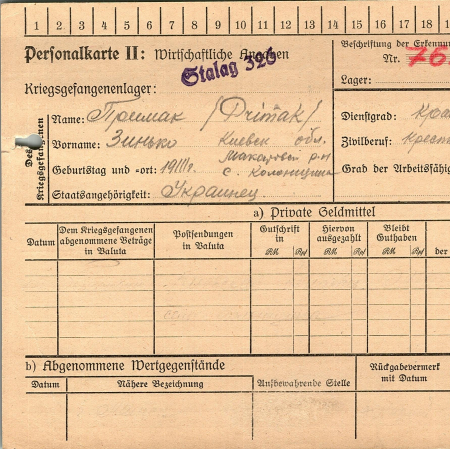 1 2 3 4 5 6 7 8 9 10 11 12 13 14 15 16 17 18
Personalkarte II: Wirtschaftliche Angaben
Stalag 326
Beschriftung der Erkennun
Nr. 76
Lager:
Kriegsgefangenenlager:
Des Kriegsgefangenen
Name: Примак /Primak/
Vorname: Зинько Киевск обл.
Макаровск р-н
Geburtstag und -ort: 19 с. Колонщина
Staatsangehörigkeit: Украинец
Dienstgrad:
Zivilberuf: Крест
Grad der Arbeitsfähig
a) Private Geldmittel
Datum
Dem Kriegsgefangenen abgenommene Beträge in Valuta
Postsendungen in Valuta
Gutschrift in
RM Rpf
Hiervon ausgezahlt
RM Rpf
Bleibt Guthaben
RM Rpf
der
b) Abgenommene Wertgegenstände
Datum
Nähere Bezeichnung
Aufbewahrende Stelle
Rückgabevermerk mit Datum